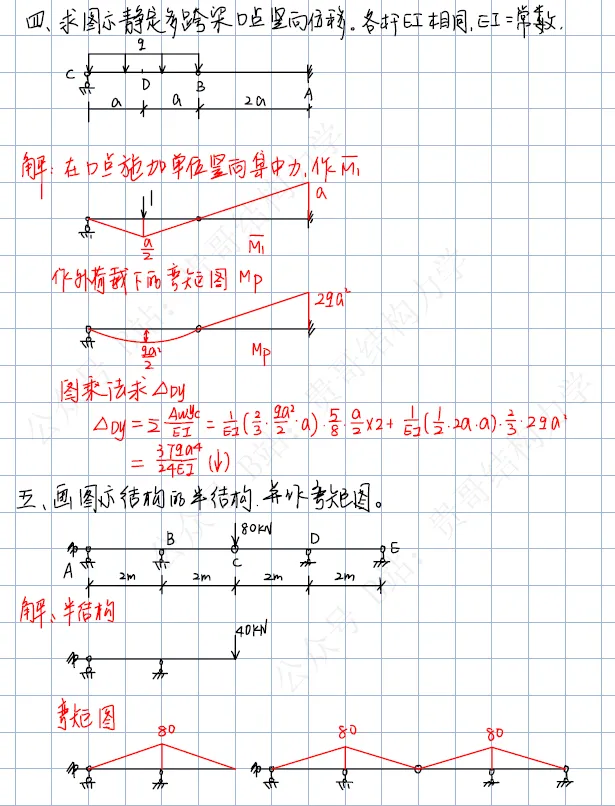 四、求图示静定多跨梁D点竖向位移。各杆EI相同,EI=常数.
q
C D B A
a a 2a
解:在D点施加单位竖向集中力,作M̄₁
1 a
a/2 M̄₁
作外荷载下的弯矩图 Mp
2qa²
qa²/2 Mp
图乘法求△Dy
△Dy = Σ Aωyc/EI = 1/EI(2/3·qa²/2·a)·5/8·a/2×2+1/EI(1/2·2a·a)·2/3·2qa²
= 37qa⁴/24EI (↓)
五、画图示结构的半结构.并作弯矩图。
80KN
A B C D E
2m 2m 2m 2m
解、半结构
40KN
弯矩图
80 80 80
公众号 B站:贵哥结构力学
公众号 B站:贵哥结构力学